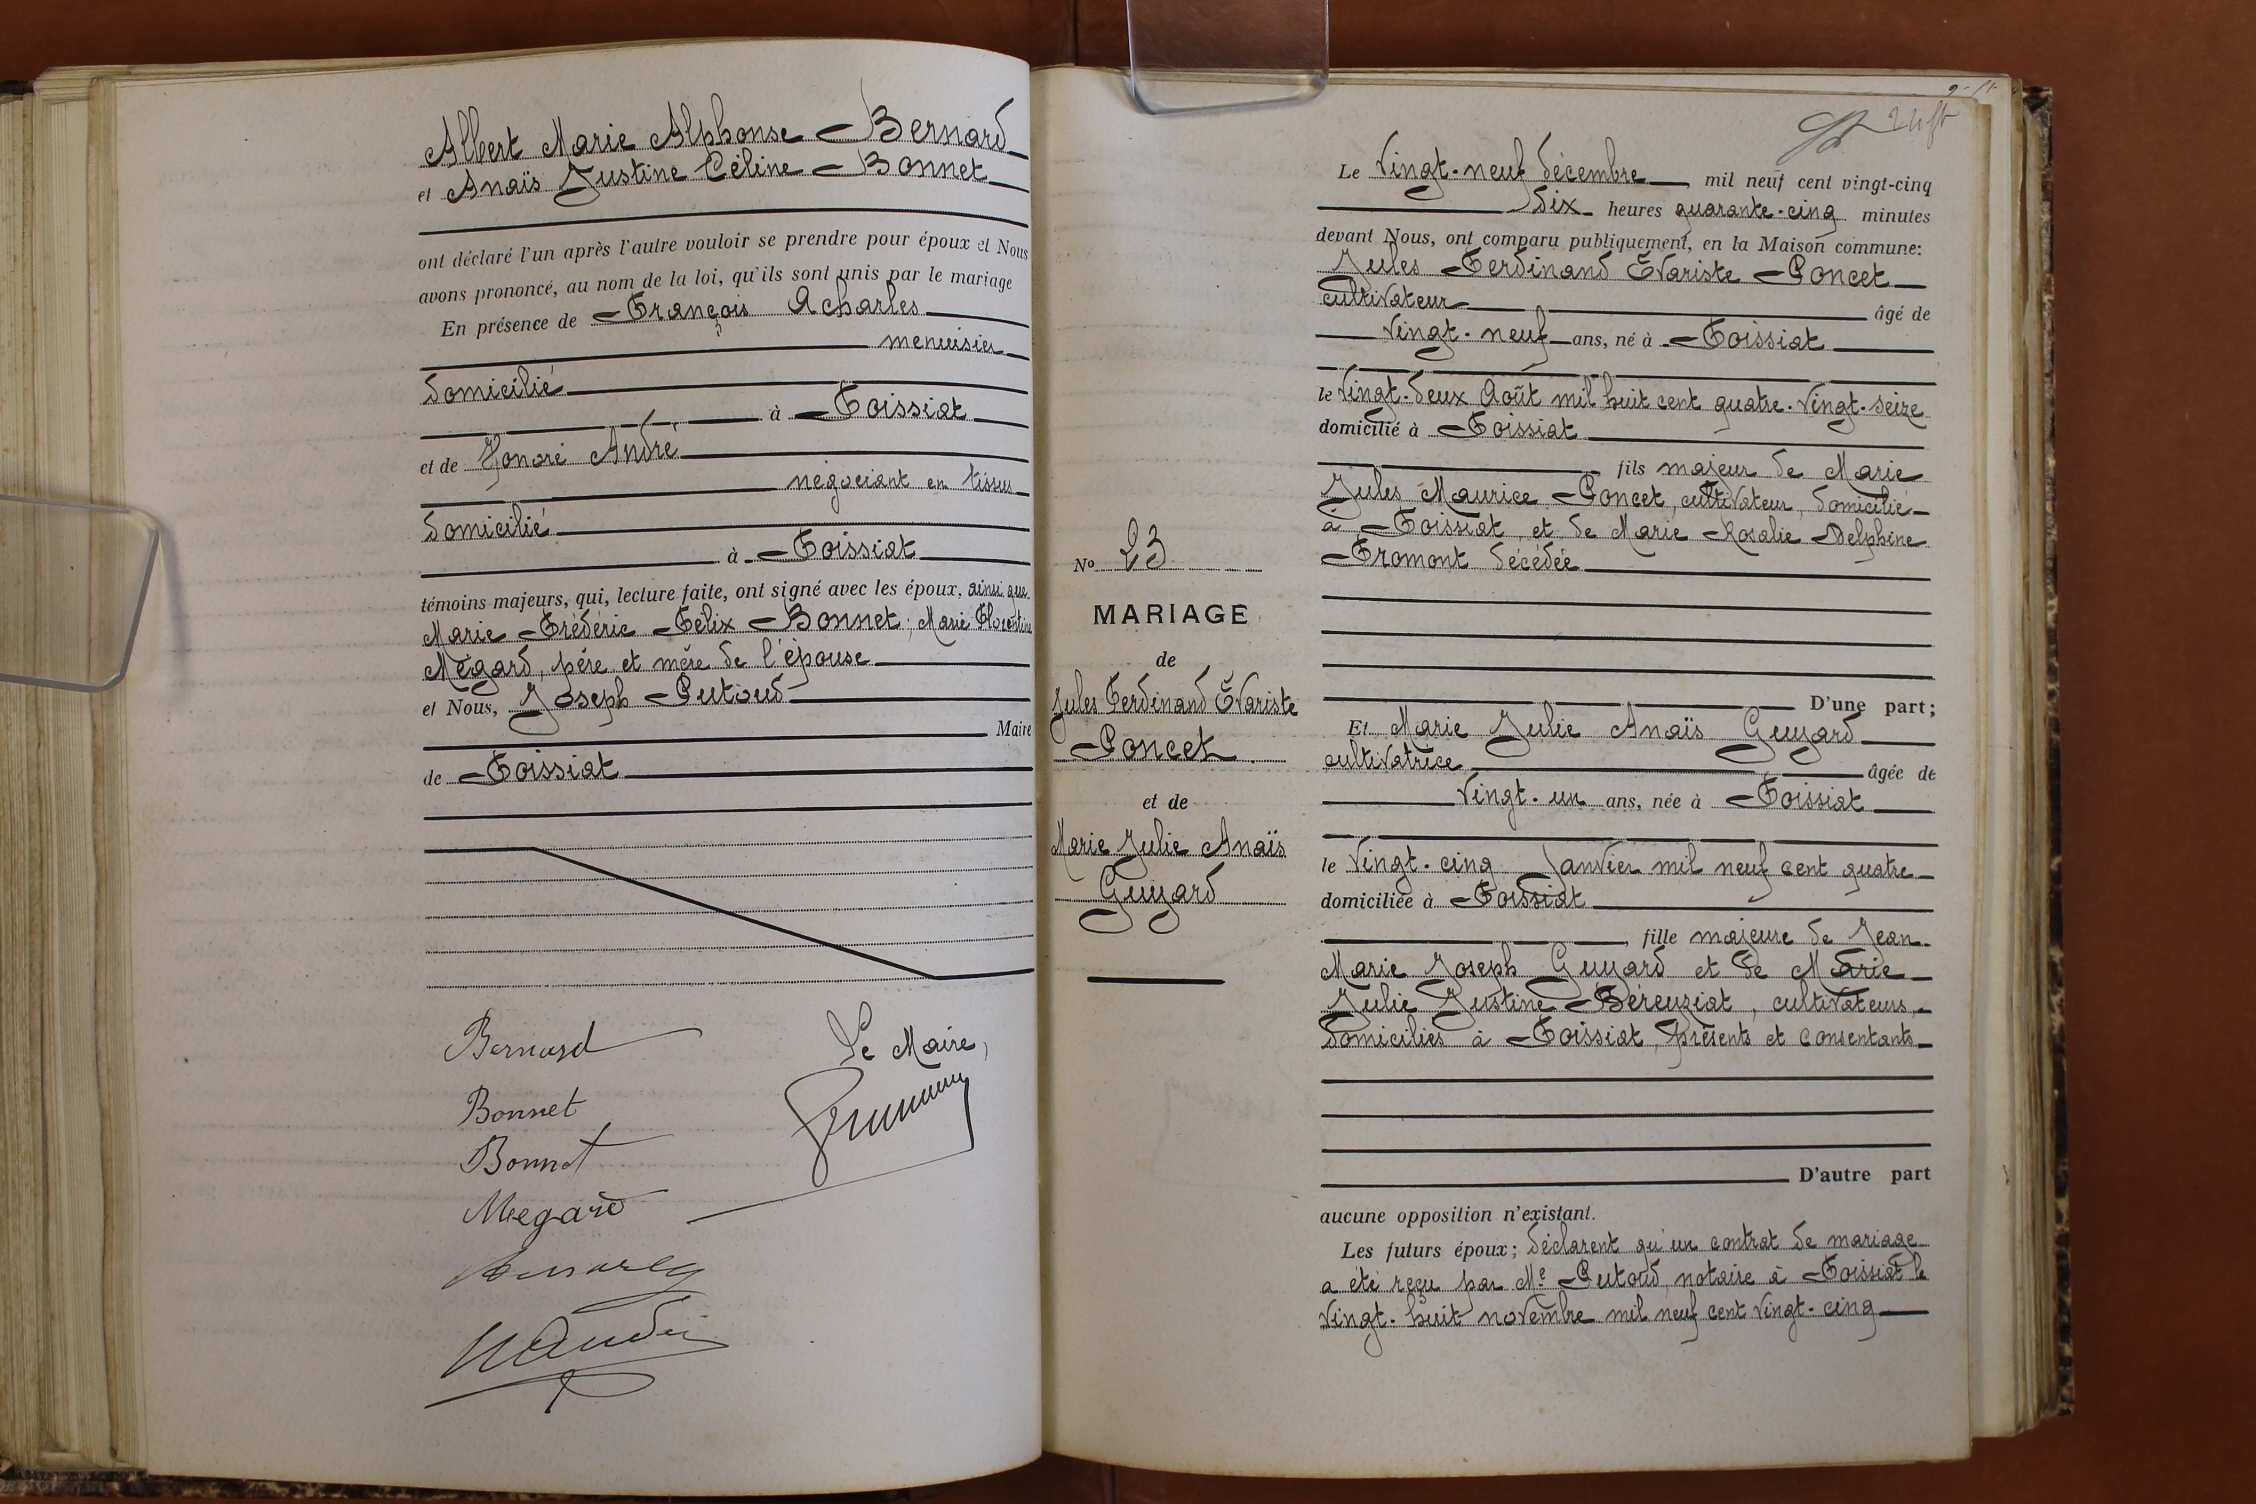 Albert Marie Alphonse Bernard
et Anaïs Justine Céline Bonnet
ont déclaré l'un après l'autre vouloir se prendre pour époux et Nous
avons prononcé, au nom de la loi, qu'ils sont unis par le mariage
En présence de François Acharles
menuisier
domicilié
à Foissiat
et de Honoré André
négociant en tissus
domicilié
à Foissiat
témoins majeurs, qui, lecture faite, ont signé avec les époux, ainsi que
Marie Frédéric Félix Bonnet; Marie Florentine
Mégard, père et mère de l'épouse
et Nous, Joseph Putoud
Maire
de Foissiat
Bernard
Le Maire,
Bonnet
Bonnet
Megard
HAndré
Le Vingt-neuf décembre mil neuf cent vingt-cinq
dix heures quarante-cinq minutes
devant Nous, ont comparu publiquement, en la Maison commune:
Jules Ferdinand Evariste Poncet
cultivateur âgé de
Vingt-neuf ans, né à Foissiat
le Vingt-deux Août mil huit cent quatre-Vingt-seize
domicilié à Foissiat
fils majeur de Marie
Jules Maurice Poncet, cultivateur, domicilié
à Foissiat, et de Marie Rosalie Delphine
Fromont décédée
D'une part;
Et Marie Julie Anaïs Guyard
cultivatrice âgée de
Vingt-un ans, née à Foissiat
le Vingt-cinq Janvier mil neuf cent quatre
domiciliée à Foissiat
fille majeure de Jean
Marie Joseph Guyard et de Marie
Julie Justine Béreyziat, cultivateurs,
domiciliés à Foissiat, présents et consentants
D'autre part
aucune opposition n'existant.
Les futurs époux; déclarent qu'un contrat de mariage
a été reçu par Me Putoud, notaire à Foissiat le
Vingt-huit novembre mil neuf cent Vingt-cinq
No 23
MARIAGE
de
Jules Ferdinand Evariste
Poncet
et de
Marie Julie Anaïs
Guyard